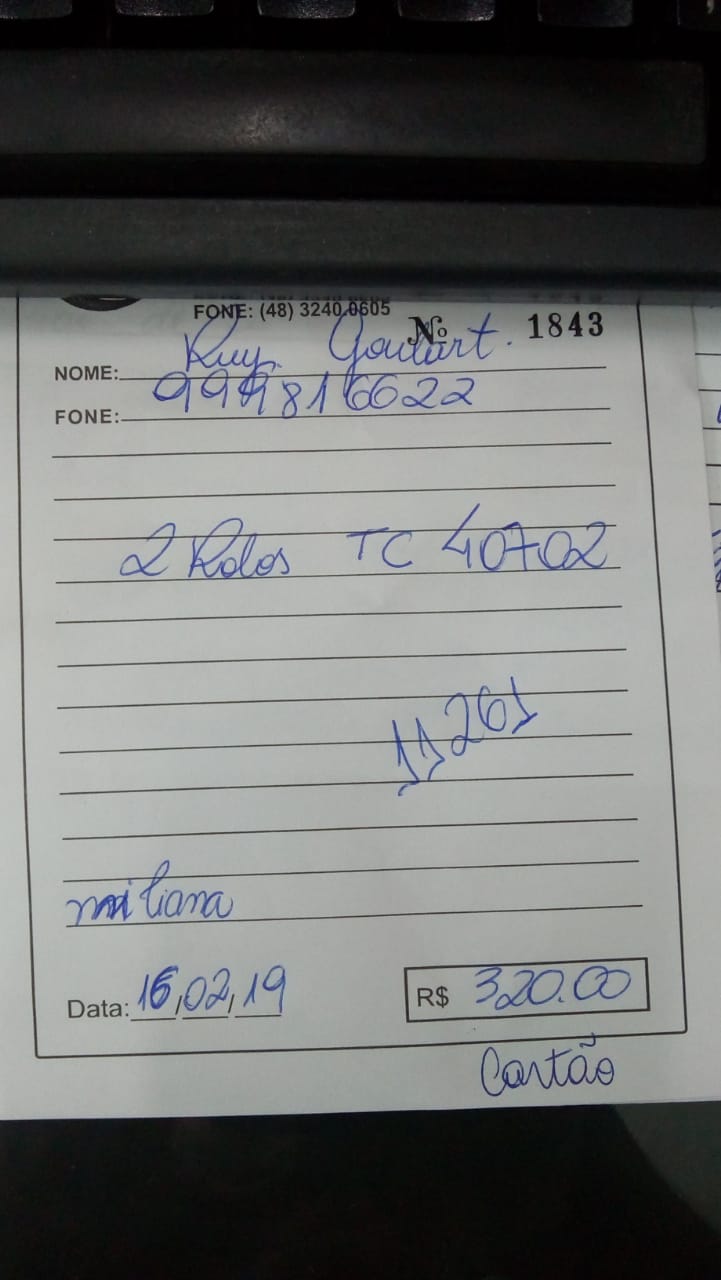 FONE: (48) 3240.0605
Nº 1843
NOME: Ruy Goulart.
FONE: 999816622
2 Rolos TC 40702
11261
miliana
Data: 16,02,19
R$ 320.00
Cartão